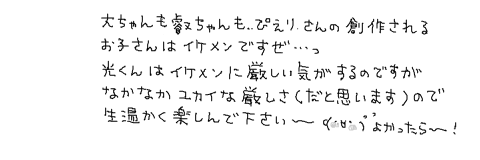 大ちゃんも叡ちゃんも…ぴえりさんの創作される
お子さんはイケメンですぜ…っ
光くんはイケメンに厳しい気がするのですが
なかなかユカイな厳しさ(だと思います)ので
生温かく楽しんで下さい〜 よかったら〜!